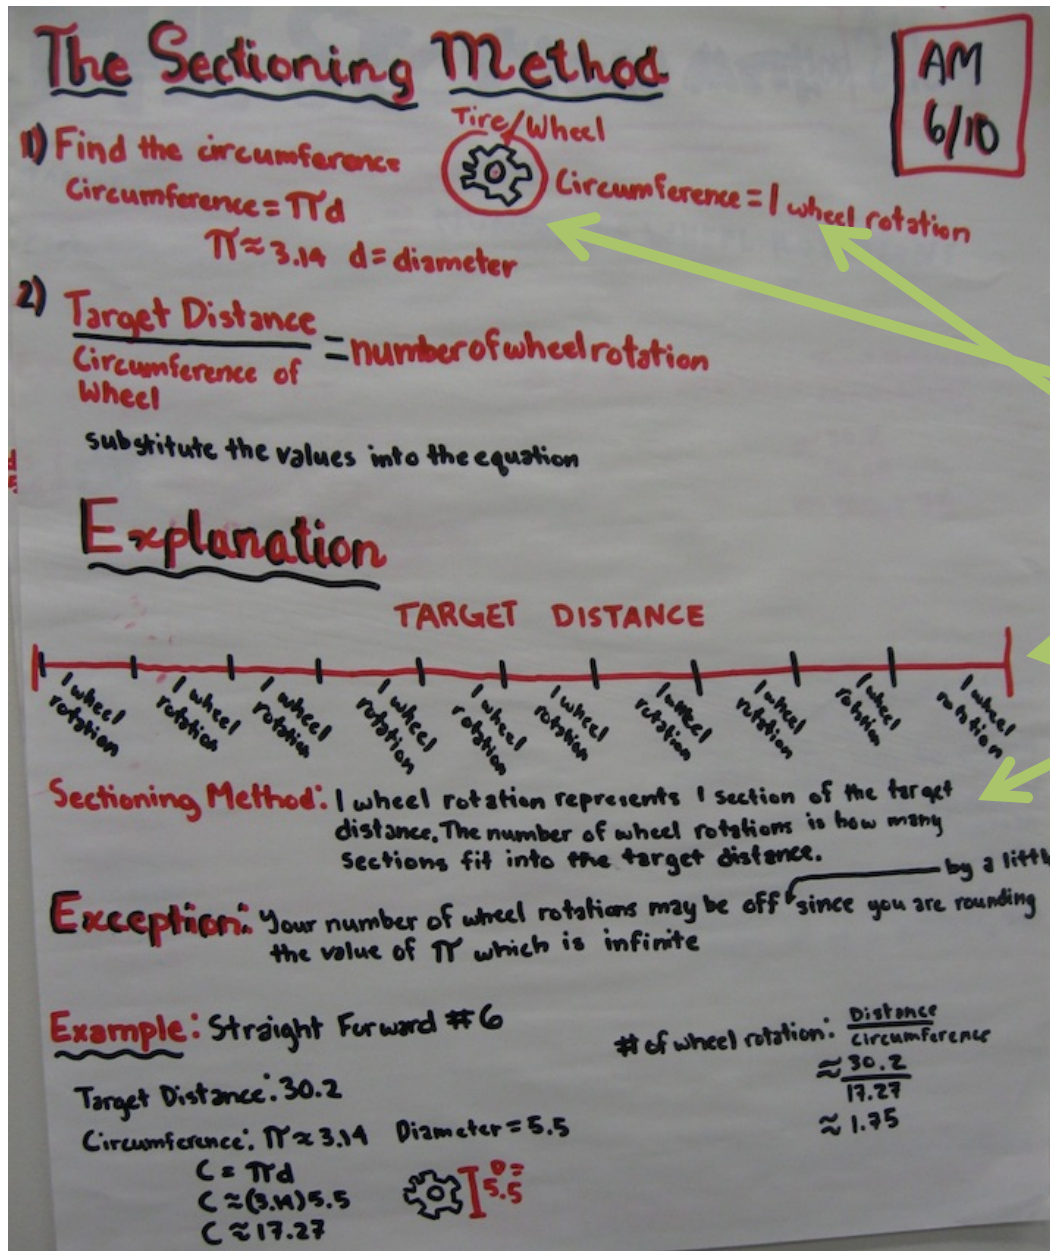 The Sectioning Method
AM
6/10
1) Find the circumference
Circumference = πd
π ≈ 3.14 d = diameter
Tire/Wheel
Circumference = 1 wheel rotation
2) Target Distance
Circumference of
Wheel
= number of wheel rotation
substitute the values into the equation
Explanation
TARGET DISTANCE
1 wheel
rotation
1 wheel
rotation
1 wheel
rotation
1 wheel
rotation
1 wheel
rotation
1 wheel
rotation
1 wheel
rotation
1 wheel
rotation
1 wheel
rotation
1 wheel
rotation
Sectioning Method: 1 wheel rotation represents 1 section of the target
distance. The number of wheel rotations is how many
sections fit into the target distance.
by a little
Exception: Your number of wheel rotations may be off since you are rounding
the value of π which is infinite
Example: Straight Forward #6
Target Distance: 30.2
Circumference: π ≈ 3.14 Diameter = 5.5
C = πd
C ≈ (3.14)5.5
C ≈ 17.27
D =
5.5
# of wheel rotation: Distance
circumference
≈ 30.2
17.27
≈ 1.75